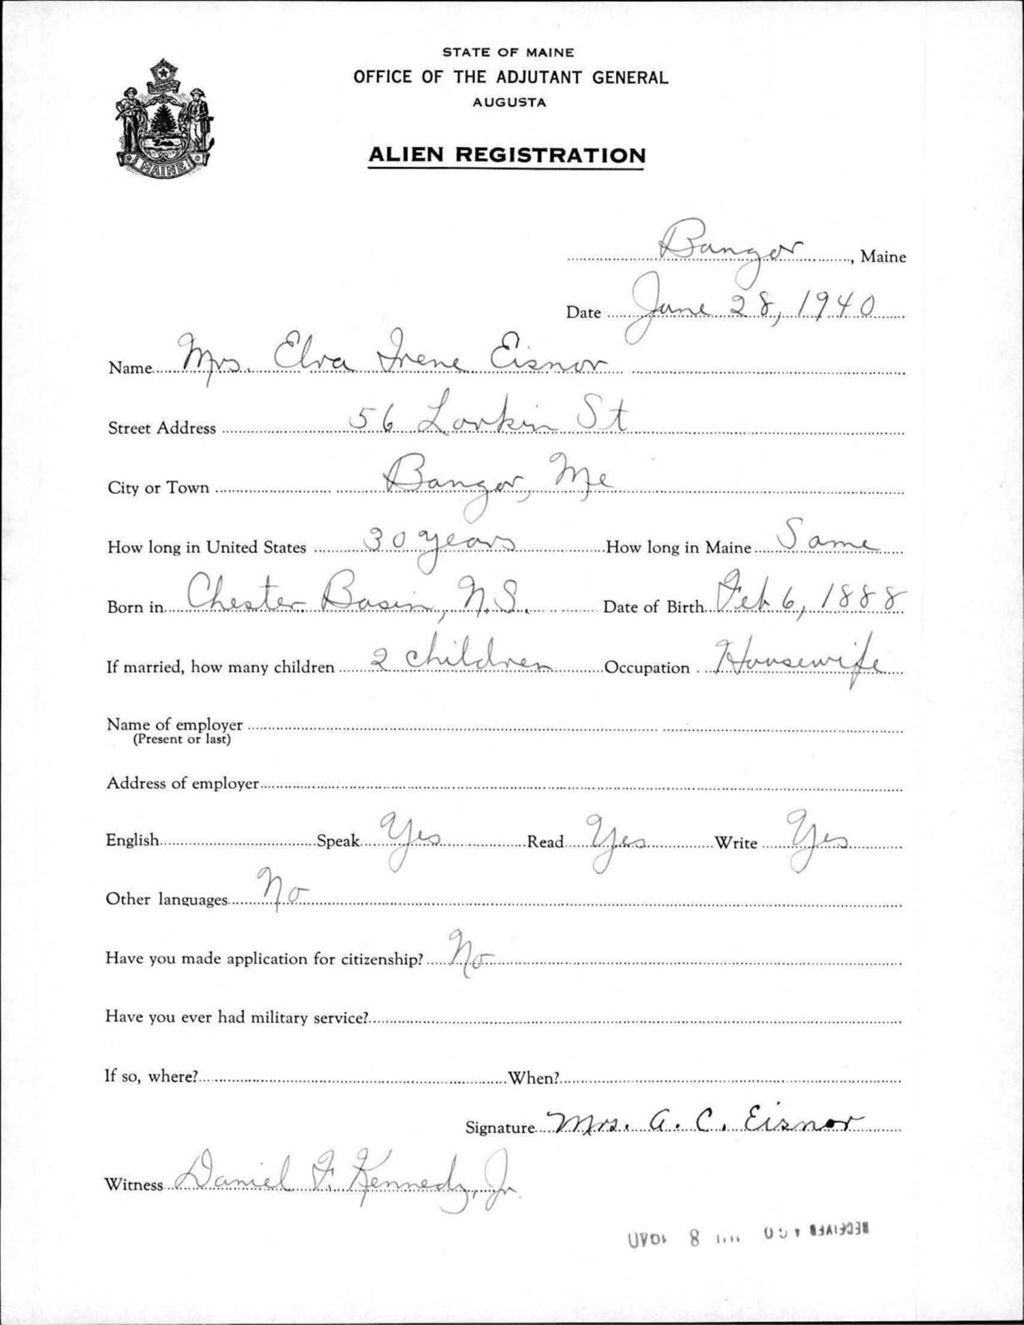 STATE OF MAINE
OFFICE OF THE ADJUTANT GENERAL
AUGUSTA
ALIEN REGISTRATION
MAINE
Bangor, Maine
Date June 28, 1940
Name Mrs. Elva Irene Eisnor
Street Address 56 Larkin St
City or Town Bangor, Me
How long in United States 30 years How long in Maine Same
Born in Chester Basin, N.S. Date of Birth Feb 6, 1888
If married, how many children 2 children Occupation Housewife
Name of employer
(Present or last)
Address of employer
English Speak Yes Read Yes Write Yes
Other languages No
Have you made application for citizenship? No
Have you ever had military service?
If so, where? When?
Signature Mrs. A. C. Eisnor
Witness Daniel F. Kennedy, Jr